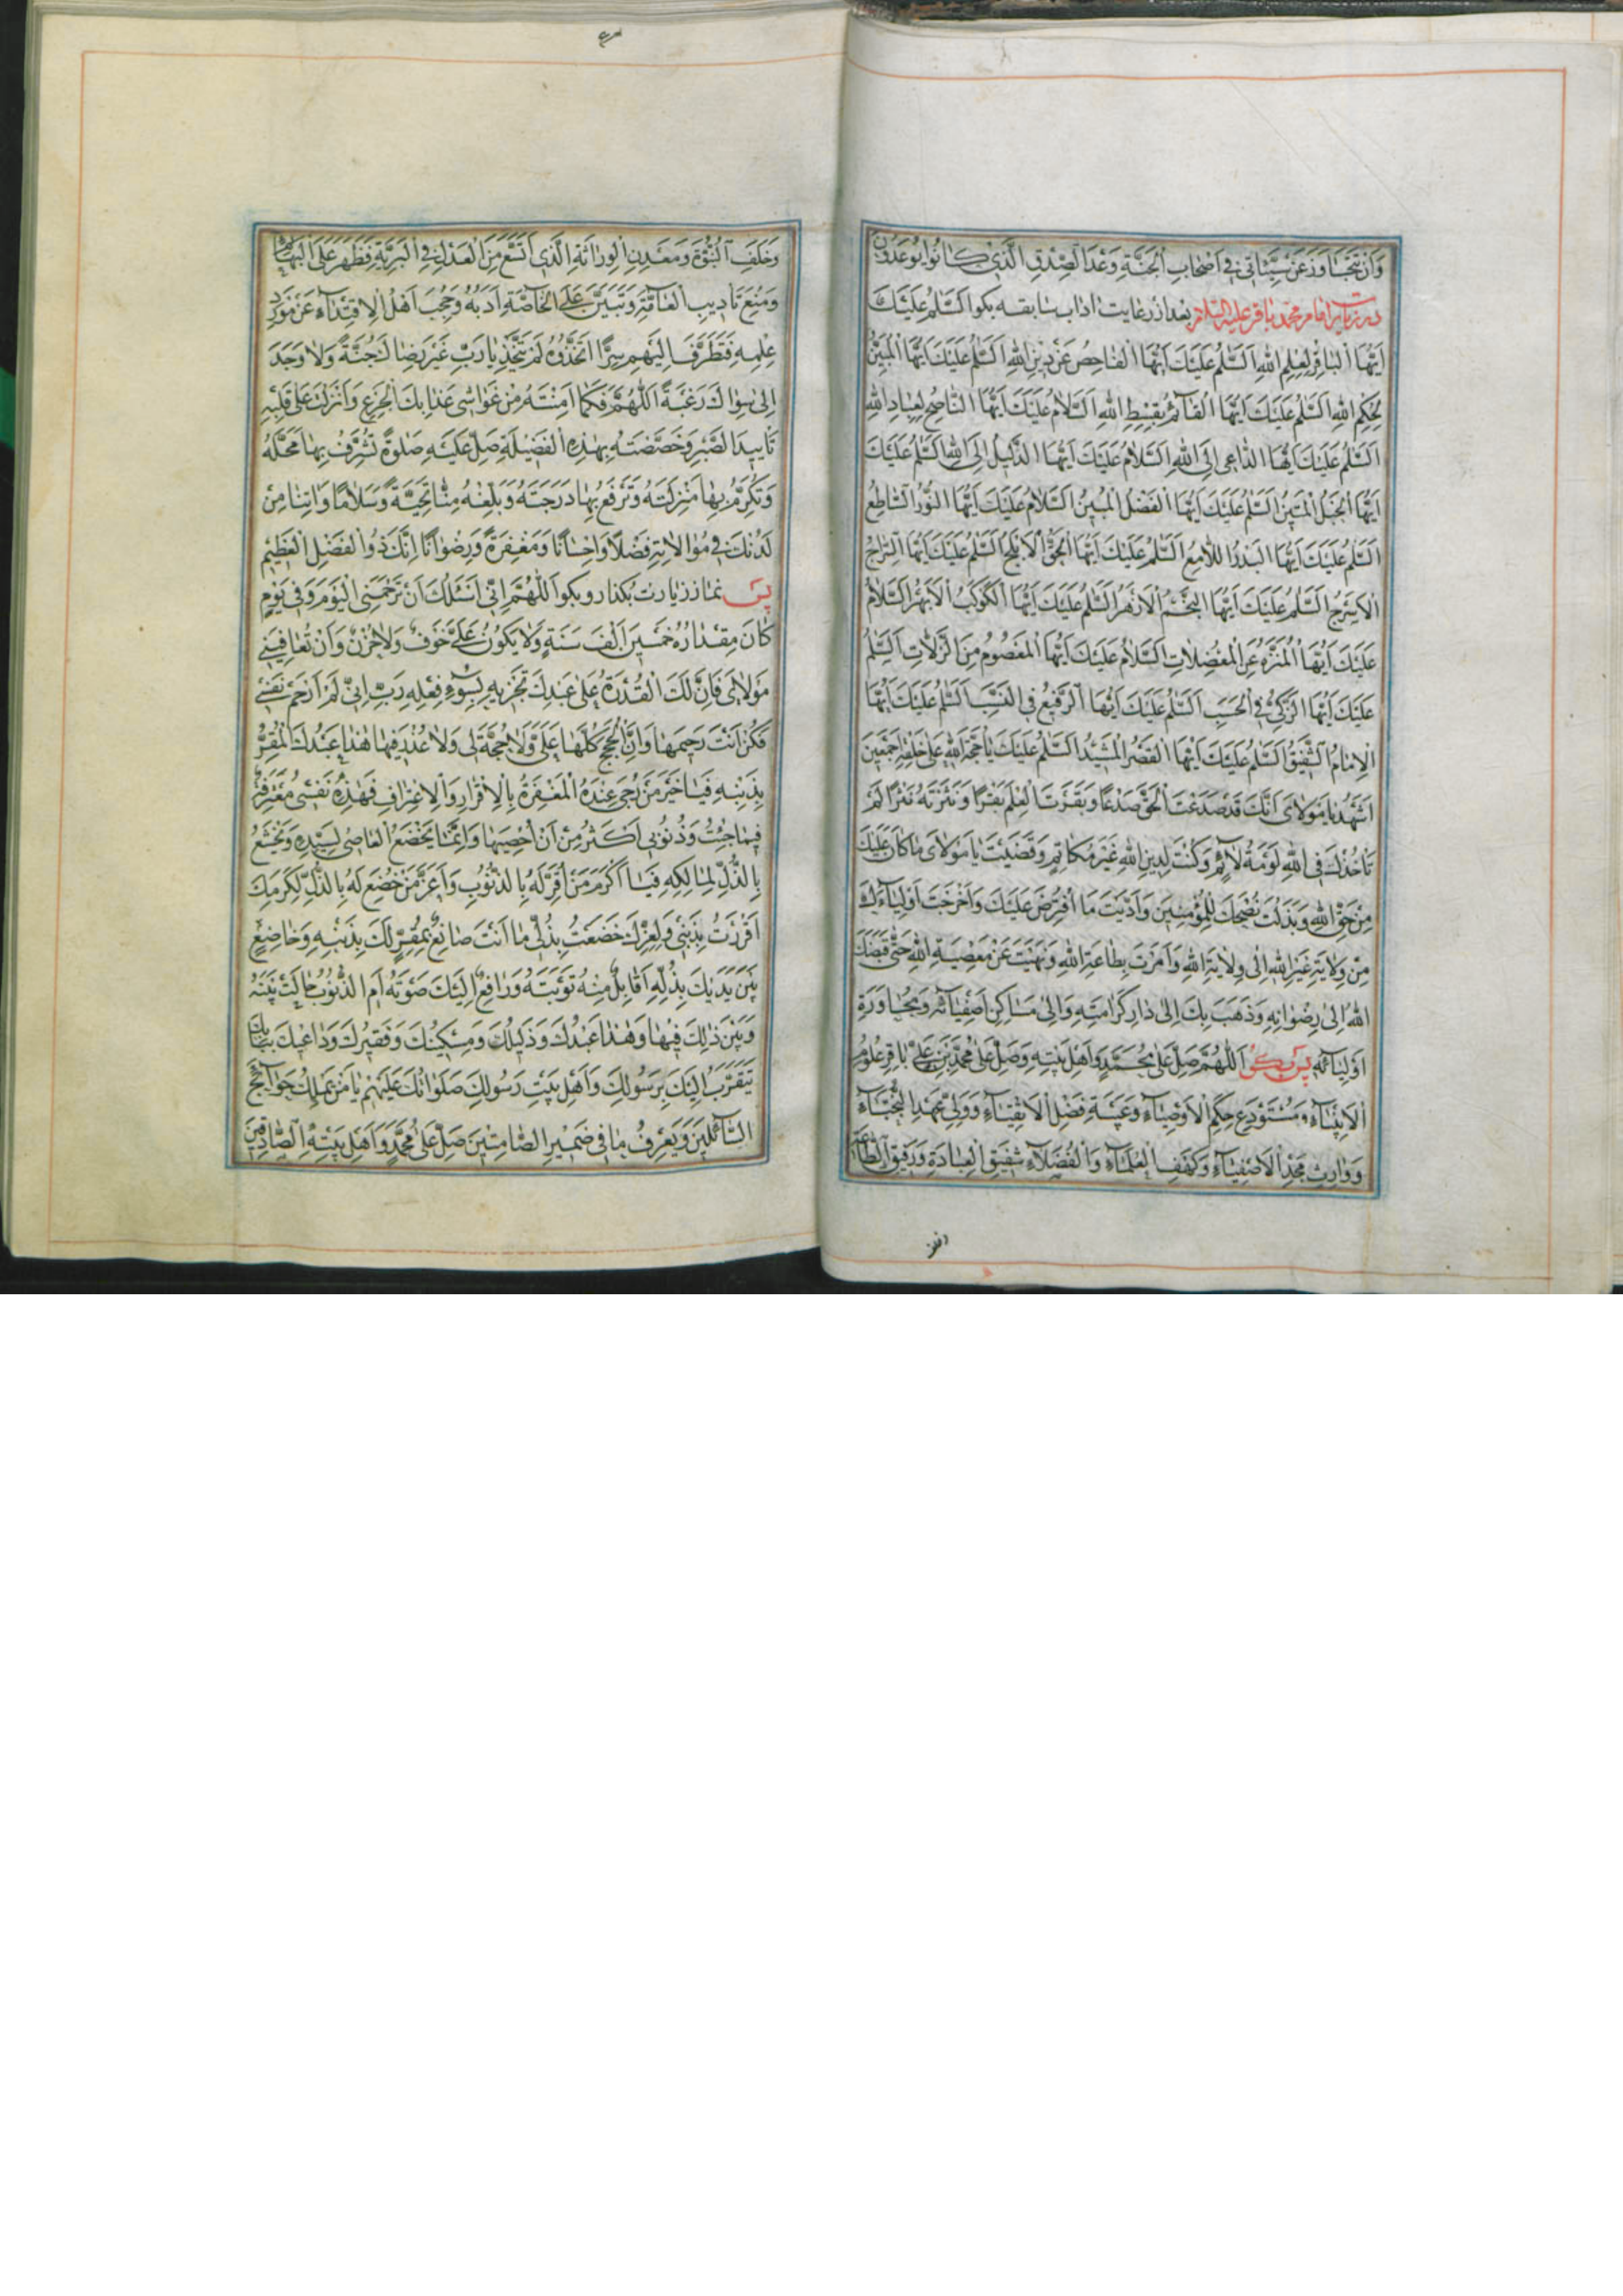 وَاَنْ تَتَجَاوَزَ عَنْ سَيِّئَاتِي فِي اَصْحَابِ الْجَنَّةِ وَعْدَ الصِّدْقِ الَّذِي كَانُوا يُوعَدُونَ
در زيارت امام محمد باقر عليه السلام بعد از رعايت اداب سابقه بكو اَلسَّلٰمُ عَلَيْكَ
اَيُّهَا الْبَاقِرُ لِعِلْمِ اللهِ اَلسَّلٰمُ عَلَيْكَ اَيُّهَا الْفَاحِصُ عَنْ دِينِ اللهِ اَلسَّلٰمُ عَلَيْكَ اَيُّهَا الْمُبَيِّنُ
لِحُكْمِ اللهِ اَلسَّلٰمُ عَلَيْكَ اَيُّهَا الْقَآئِمُ بِقِسْطِ اللهِ اَلسَّلامُ عَلَيْكَ اَيُّهَا النَّاصِحُ لِعِبَادِ اللهِ
اَلسَّلٰمُ عَلَيْكَ اَيُّهَا الدَّاعِي اِلَى اللهِ اَلسَّلامُ عَلَيْكَ اَيُّهَا الدَّلِيلُ اِلَى اللهِ اَلسَّلٰمُ عَلَيْكَ
اَيُّهَا الْحَبْلُ الْمَتِينُ اَلسَّلٰمُ عَلَيْكَ اَيُّهَا الْفَضْلُ الْمُبِينُ اَلسَّلامُ عَلَيْكَ اَيُّهَا النُّورُ السَّاطِعُ
اَلسَّلٰمُ عَلَيْكَ اَيُّهَا الْبَدْرُ اللَّامِعُ اَلسَّلٰمُ عَلَيْكَ اَيُّهَا الْحَقُّ الْاَبْلَجُ اَلسَّلٰمُ عَلَيْكَ اَيُّهَا السِّرَاجُ
الْاَسْرَجُ اَلسَّلٰمُ عَلَيْكَ اَيُّهَا النَّجْمُ الْاَزْهَرُ اَلسَّلٰمُ عَلَيْكَ اَيُّهَا الْكَوْكَبُ الْاَبْهَرُ اَلسَّلامُ
عَلَيْكَ اَيُّهَا الْمُنَزَّهُ عَنِ الْمُعْضِلاتِ اَلسَّلامُ عَلَيْكَ اَيُّهَا الْمَعْصُومُ مِنَ الزَّلَّاتِ اَلسَّلٰمُ
عَلَيْكَ اَيُّهَا الزَّكِيُّ فِي الْحَسَبِ اَلسَّلٰمُ عَلَيْكَ اَيُّهَا الرَّفِيعُ فِي النَّسَبِ اَلسَّلٰمُ عَلَيْكَ اَيُّهَا
الْاِمَامُ الشَّفِيقُ اَلسَّلٰمُ عَلَيْكَ اَيُّهَا الْقَصْرُ الْمَشِيدُ اَلسَّلٰمُ عَلَيْكَ يَا حُجَّةَ اللهِ عَلَى خَلْقِهِ اَجْمَعِينَ
اَشْهَدُ يَا مَوْلَايَ اَنَّكَ قَدْ صَدَعْتَ الْحَقَّ صَدْعًا وَبَقَرْتَ الْعِلْمَ بَقْرًا وَنَثَرْتَهُ نَثْرًا لَمْ
تَأْخُذْكَ فِي اللهِ لَوْمَةُ لَآئِمٍ وَكُنْتَ لِدِينِ اللهِ غَيْرَ مُكَاتِمٍ وَقَضَيْتَ يَا مَوْلَايَ مَا كَانَ عَلَيْكَ
مِنْ حَقِّ اللهِ وَبَذَلْتَ نُصْحَكَ لِلْمُؤْمِنِينَ وَاَدَّيْتَ مَا افْتُرِضَ عَلَيْكَ وَاَخْرَجْتَ اَوْلِيَآءَكَ
مِنْ وِلَايَةِ غَيْرِ اللهِ اِلَى وِلَايَةِ اللهِ وَاَمَرْتَ بِطَاعَةِ اللهِ وَنَهَيْتَ عَنْ مَعْصِيَةِ اللهِ حَتَّى قَبَضَكَ
اللهُ اِلَى رِضْوَانِهِ وَذَهَبَ بِكَ اِلَى دَارِ كَرَامَتِهِ وَاِلَى مَسَاكِنِ اَصْفِيَآئِهِ وَمُجَاوَرَةِ
اَوْلِيَآئِهِ پس بكو اَللّٰهُمَّ صَلِّ عَلَى مُحَمَّدٍ وَاَهْلِ بَيْتِهِ وَصَلِّ عَلَى مُحَمَّدِ بْنِ عَلِيٍّ بَاقِرِ عُلُومِ
الْاَنْبِيَآءِ وَمُسْتَوْدَعِ حِكَمِ الْاَوْصِيَآءِ وَعَيْبَةِ فَضْلِ الْاَتْقِيَآءِ وَوَلِيِّ عَهْدِ النُّجَبَآءِ
وَوَارِثِ مَجْدِ الْاَصْفِيَآءِ وَكَهْفِ الْعُلَمَآءِ وَالْفُضَلَآءِ شَفِيقِ الْعِبَادَةِ وَرَفِيقِ الطَّاعَةِ
وَخَلَفِ النُّبُوَّةِ وَمَعْدِنِ الْوِرَاثَةِ الَّذِي اتَّسَعَ مِنَ الْعَدْلِ فِي الْبَرِيَّةِ فَظَهَرَ عَلَى الْبَهَائِمِ
وَمُنِعَ تَأْدِيبِ الْعَامَّةِ وَتَبَيَّنَ عَلَى الْخَاصَّةِ اَدَبُهُ وَحُجِبَ اَهْلُ الْاِقْتِدَآءِ عَنْ مَوْرِدِ
عِلْمِهِ فَتَطَرَّفَ اِلَيْهِمْ سِرًّا اتَّخَذُوهُ لَمْ يَتَّخِذْ يَا رَبِّ غَيْرَ رِضَاكَ جُنَّةً وَلَا وَجَدَ
اِلَى سِوَاكَ رَغْبَةً اَللّٰهُمَّ فَكَمَا اَمِنْتَهُ مِنْ غَوَاشِي عَذَابِكَ الْجَزَعِ وَاَنْزَلْتَ عَلَى قَلْبِهِ
تَأْيِيدَ الصَّبْرِ وَخَصَّصْتَهُ بِهٰذِهِ الْفَضِيلَةِ صَلِّ عَلَيْهِ صَلٰوةً تُشَرِّفُ بِهَا مَحَلَّهُ
وَتُكَرِّمُ بِهَا مَنْزِلَتَهُ وَتَرْفَعُ بِهَا دَرَجَتَهُ وَبَلِّغْهُ مِنَّا تَحِيَّةً وَسَلَامًا وَاٰتِنَا مِنْ
لَدُنْكَ فِي مُوَالَاتِهِ فَضْلًا وَاِحْسَانًا وَمَغْفِرَةً وَرِضْوَانًا اِنَّكَ ذُو الْفَضْلِ الْعَظِيمِ
پس نماز زيارت بكذار وبكو اَللّٰهُمَّ اِنِّي اَسْئَلُكَ اَنْ تَرْحَمَنِي الْيَوْمَ وَفِي يَوْمٍ
كَانَ مِقْدَارُهُ خَمْسِينَ اَلْفَ سَنَةٍ وَلَا يَكُونُ عَلَيَّ خَوْفٌ وَلَا حُزْنٌ وَاَنْ تُعَافِيَنِي
مَوْلَايَ فَاِنَّ لَكَ الْقُدْرَةَ عَلَى عَبْدِكَ تَجْزِيهِ بِسُوءِ فِعْلِهِ رَبِّ اِنِّي لَمْ اَرْحَمْ نَفْسِي
فَكُنْ اَنْتَ رَحِيمَهَا وَاَنَّ الْحُجَجَ كُلَّهَا عَلَيَّ وَلَا حُجَّةَ لِي وَلَا عُذْرَ فِيهَا هٰذَا عَبْدُكَ الْمُقِرُّ
بِذَنْبِهِ فَيَا خَيْرَ مَنْ رُجِيَ عِنْدَهُ الْمَغْفِرَةُ بِالْاِقْرَارِ وَالْاِعْتِرَافِ فَهٰذِهِ نَفْسِي مُعْتَرِفَةٌ
فِيمَا جَنَيْتُ وَذُنُوبِي اَكْثَرُ مِنْ اَنْ اُحْصِيَهَا وَاِنَّمَا يَخْضَعُ الْعَاصِي لِسَيِّدِهِ وَيَخْشَعُ
بِالذُّلِّ لِمَالِكِهِ فَيَا اَكْرَمَ مَنْ اُقِرَّ لَهُ بِالذُّنُوبِ وَاَعَزَّ مَنْ خُضِعَ لَهُ بِالذُّلِّ لِكَرَمِكَ
اَقْرَرْتُ بِذَنْبِي وَلِعِزِّكَ خَضَعْتُ بِذُلِّي مَا اَنْتَ صَانِعٌ بِمُقِرٍّ لَكَ بِذَنْبِهِ وَخَاضِعٍ
بَيْنَ يَدَيْكَ بِذُلِّهِ اَقَابِلٌ مِنْهُ تَوْبَتَهُ وَرَافِعٌ اِلَيْكَ صَوْتَهُ اَمِ الذُّنُوبُ حَالَتْ بَيْنَهُ
وَبَيْنَ ذٰلِكَ فِيهَا وَهٰذَا عَبْدُكَ وَذَلِيلُكَ وَمِسْكِينُكَ وَفَقِيرُكَ وَدَاعِيكَ بِبَابِكَ
يَتَقَرَّبُ اِلَيْكَ بِرَسُولِكَ وَاَهْلِ بَيْتِ رَسُولِكَ صَلَوَاتُكَ عَلَيْهِمْ يَا مَنْ يَمْلِكُ حَوَآئِجَ
السَّآئِلِينَ وَيَعْرِفُ مَا فِي ضَمِيرِ الصَّامِتِينَ صَلِّ عَلَى مُحَمَّدٍ وَاَهْلِ بَيْتِهِ الصَّادِقِينَ